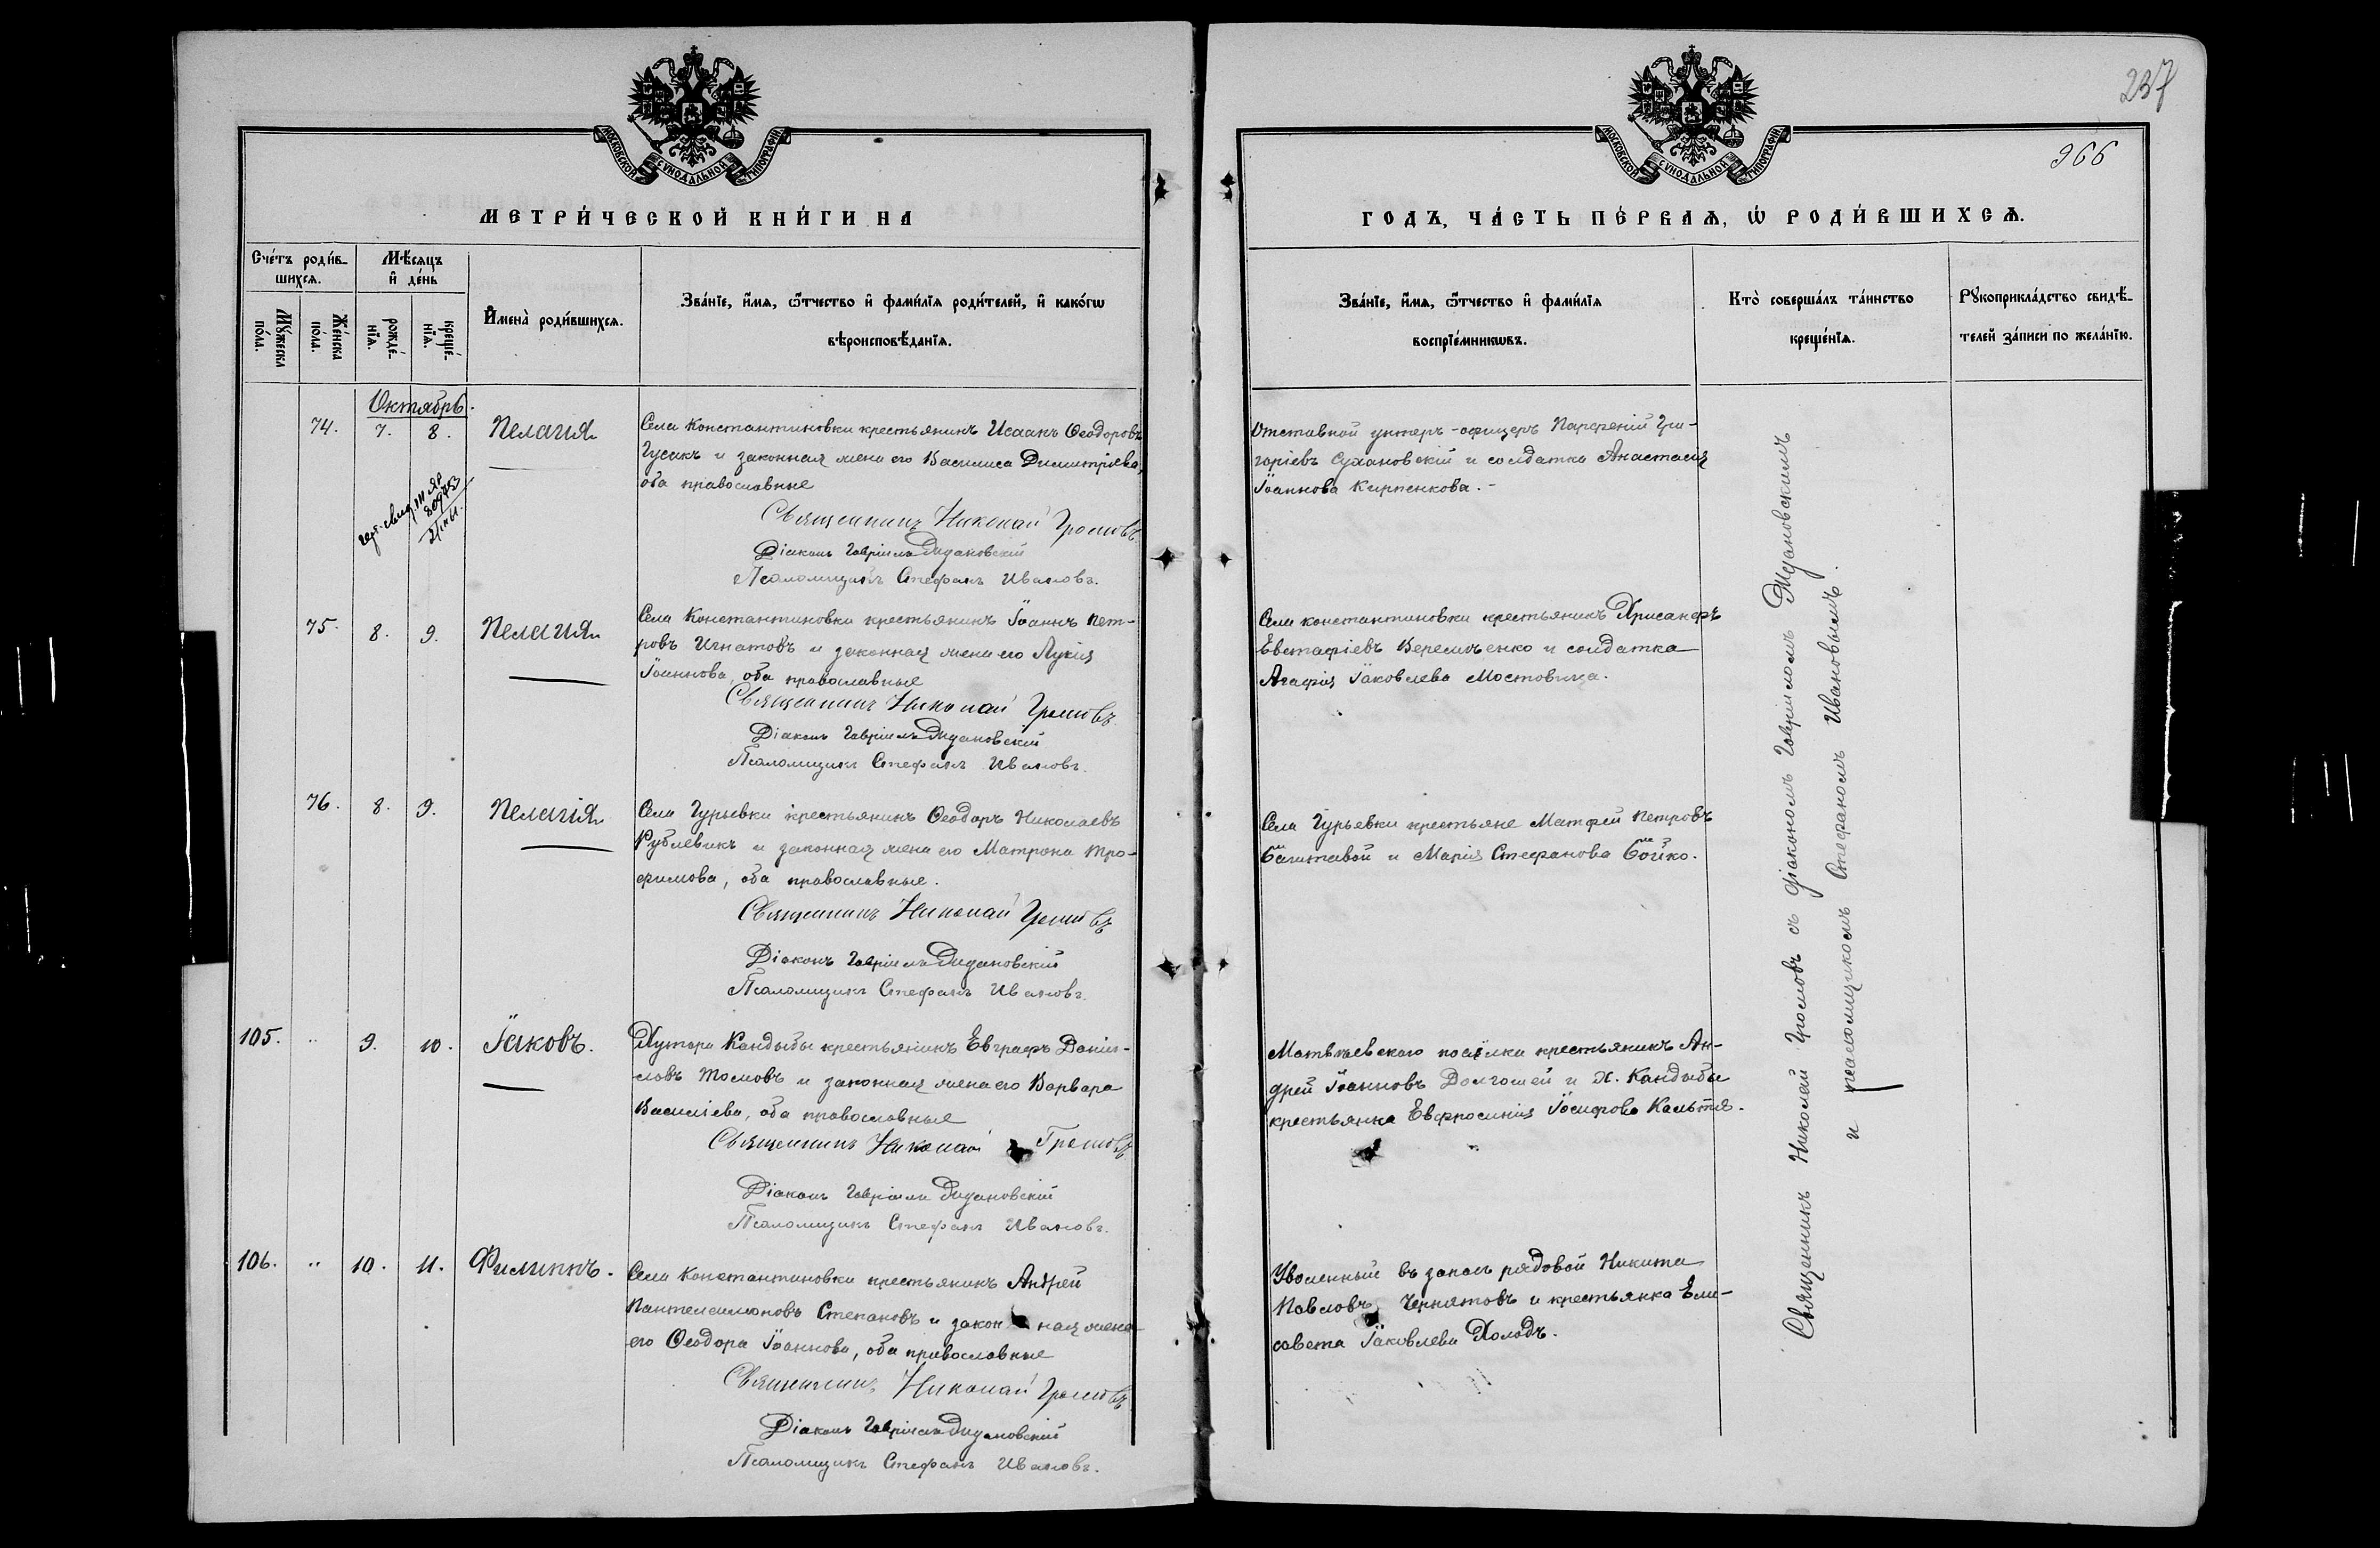 МОСКОВСКОЙ СѴНОДАЛЬНОЙ ТИПОГРАФІИ
МЕТРИ́ЧЕСКОЙ КНИ́ГИ НА
Сче́тъ роди́в-
шихсѧ.
Мѣ́сѧцъ
и҆ де́нь
И҆мена̀ роди́вшихсѧ.
Зва́нїе, и҆́мѧ, ѻ҆́тчество и҆ фами́лїѧ роди́телей, и҆ како́гѡ
вѣроисповѣ́данїѧ.
Мꙋ́жеска
по́ла.
Же́нска
по́ла.
рожде́-
нїѧ.
креще́-
нїѧ.
Октябрь.
74. 7. 8. Пелагія
Села Константиновки крестьянинъ Исаакъ Ѳеодоровъ
Гусакъ и законная жена его Василиса Димитріева,
оба православные
Священникъ Николай Громовъ
Діаконъ Гавріилъ Дидановскій
Псаломщикъ Стефанъ Ивановъ.
75. 8. 9. Пелагія
Села Константиновки крестьянинъ Іоаннъ Пет-
ровъ Игнатовъ и законная жена его Лукія
Іоаннова, оба православные
Священникъ Николай Громовъ
Діаконъ Гавріилъ Дидановскій
Псаломщикъ Стефанъ Ивановъ.
76. 8. 9. Пелагія
Села Гурьевки крестьянинъ Ѳеодоръ Николаевъ
Рублевикъ и законная жена его Матрона Тро-
фимова, оба православные.
Священникъ Николай Громовъ
Діаконъ Гавріилъ Дидановскій
Псаломщикъ Стефанъ Ивановъ.
105. „ 9. 10. Іаковъ.
Хутора Кандыбы крестьянинъ Евграфъ Даніи-
ловъ Томовъ и законная жена его Варвара
Василіева, оба православные
Священникъ Николай Громовъ
Діаконъ Гавріилъ Дидановскій
Псаломщикъ Стефанъ Ивановъ.
106. „ 10. 11. Филиппъ.
Села Константиновки крестьянинъ Андрей
Пантелеимоновъ Степановъ и законная жена
его Ѳеодора Іоаннова, оба православные
Священникъ Николай Громовъ
Діаконъ Гавріилъ Дидановскій
Псаломщикъ Стефанъ Ивановъ.
237
966
МОСКОВСКОЙ СѴНОДАЛЬНОЙ ТИПОГРАФІИ
ГОДЪ, ЧА́СТЬ ПЕ́РВАѦ, Ѡ҆ РОДИ́ВШИХСѦ.
Зва́нїе, и҆́мѧ, ѻ҆́тчество и҆ фами́лїѧ
воспрїе́мникѡвъ.
Кто̀ соверша́лъ та́инство
креще́нїѧ.
Рꙋкоприкла́дство свидѣ́-
телей за́писи по жела́нїю.
Отставной унтеръ-офицеръ Парфеній Гри-
горіевъ Сухановскій и солдатка Анастасія
Іоаннова Кирпенкова.
Села Константиновки крестьянинъ Хрисанфъ
Евстафіевъ Веремѣенко и солдатка
Агафія Іаковлева Мостовица.
Села Гурьевки крестьяне Матфей Петровъ
Баштавой и Марія Стефанова Бойко.
Матвѣевскаго посёлка крестьянинъ Ан-
дрей Іоанновъ Долгошей и х. Кандыбы
крестьянка Евфросинія Іосифова Кальтя.
Уволенный въ запасъ рядовой Никита
Павловъ Чернятовъ и крестьянка Ели-
савета Іаковлева Холодъ.
Священникъ Николай Громовъ съ діакономъ Гавріиломъ Дидановскимъ
и псаломщикомъ Стефаномъ Ивановымъ.